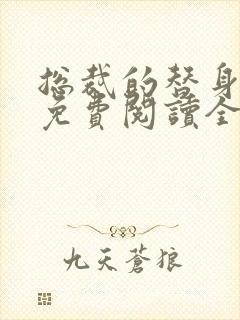 总裁的替身
免費閱讀全
九天蒼狼